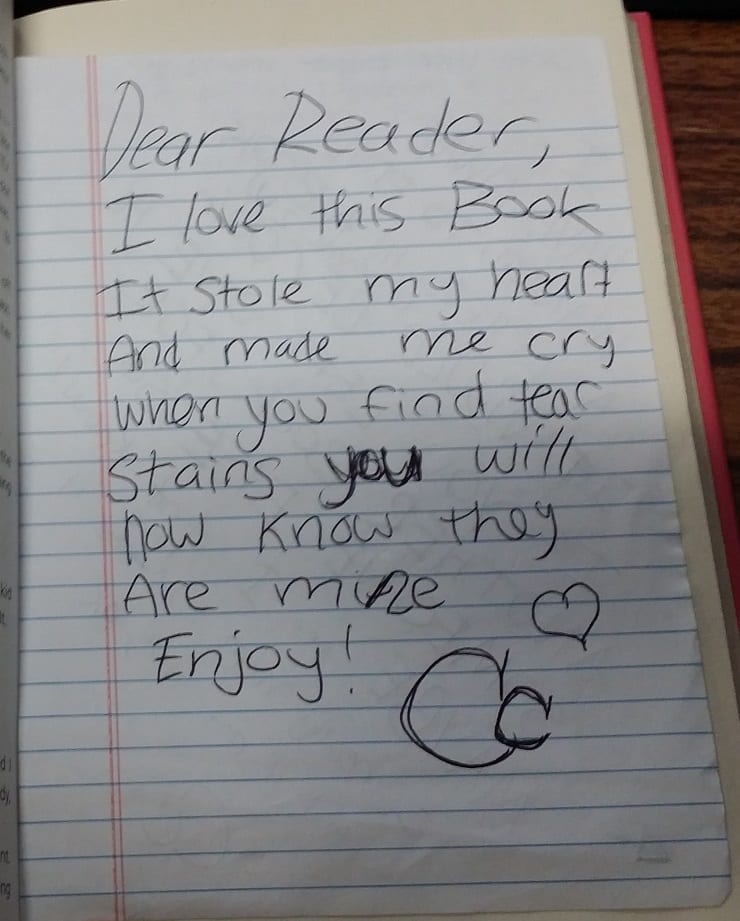 Dear Reader,
I love this Book
It stole my heart
And made me cry
when you find tear
stains you will
now know they
Are mine
Enjoy!
Cc